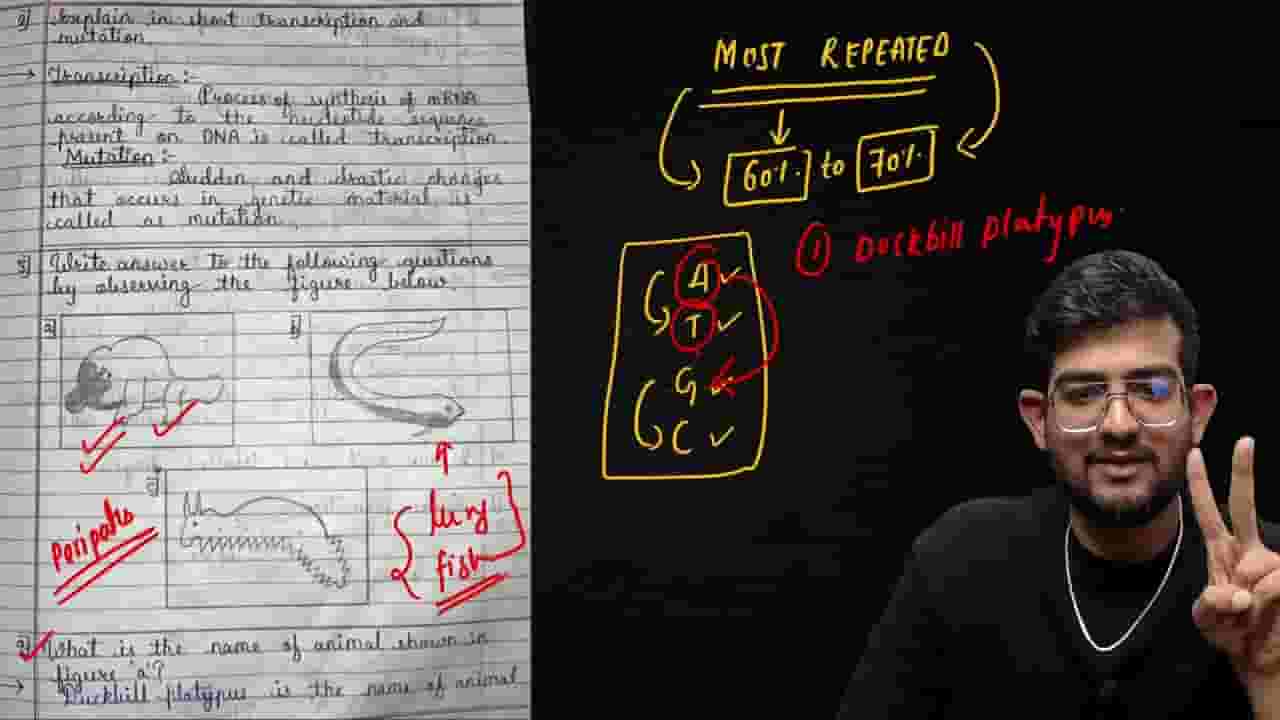 Explain in short transcription and
mutation.
→ Transcription :-
Process of synthesis of mRNA
according to the nucleotide sequence
present on DNA is called transcription.
Mutation :-
Sudden and drastic changes
that occurs in genetic material is
called as mutation.
Write answer to the following questions
by observing the figure below.
a]
b]
peripatus
lung
fish
What is the name of animal shown in
figure 'a'?
→ Duckbill platypus is the name of animal
MOST REPEATED
60%. to 70%.
① Duckbill platypus.
A ✓
T ✓
G
C ✓